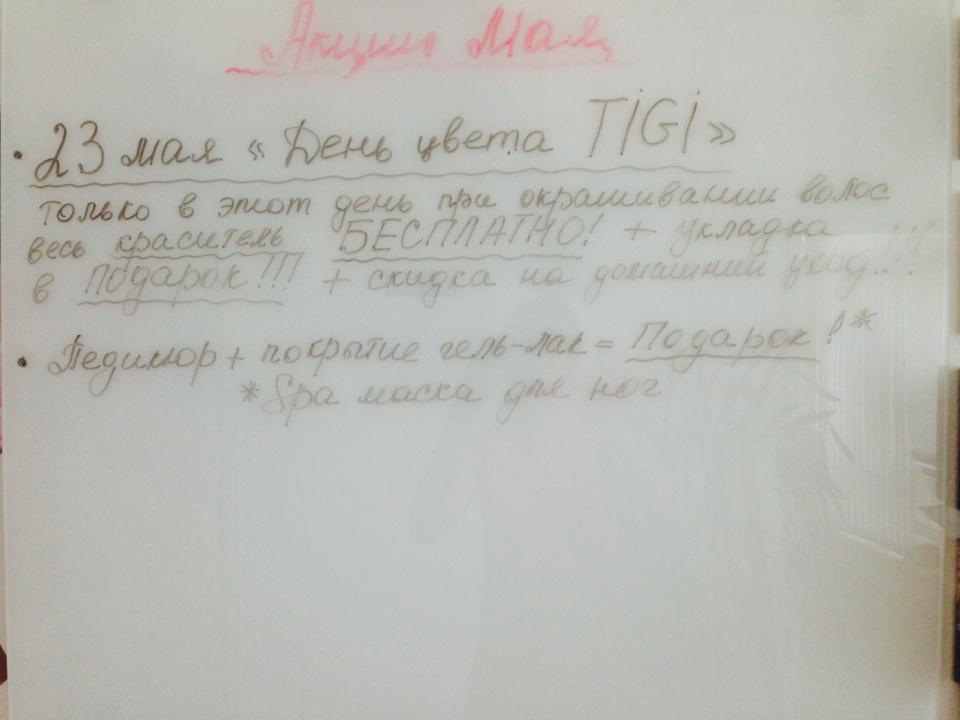 Акции Мая
• 23 мая « День цвета TIGI »
только в этот день при окрашивании волос
весь краситель БЕСПЛАТНО! + укладка
в подарок!!! + скидка на домашний уход!!!
• Педикюр + покрытие гель-лак = Подарок!*
*Spa маска для ног